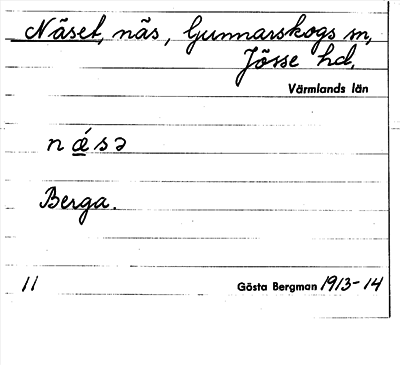 Näset, näs, Gunnarskogs sn,
Jösse hd.
Värmlands län
n ǽ s ə
Berga.
11 Gösta Bergman 1913-14